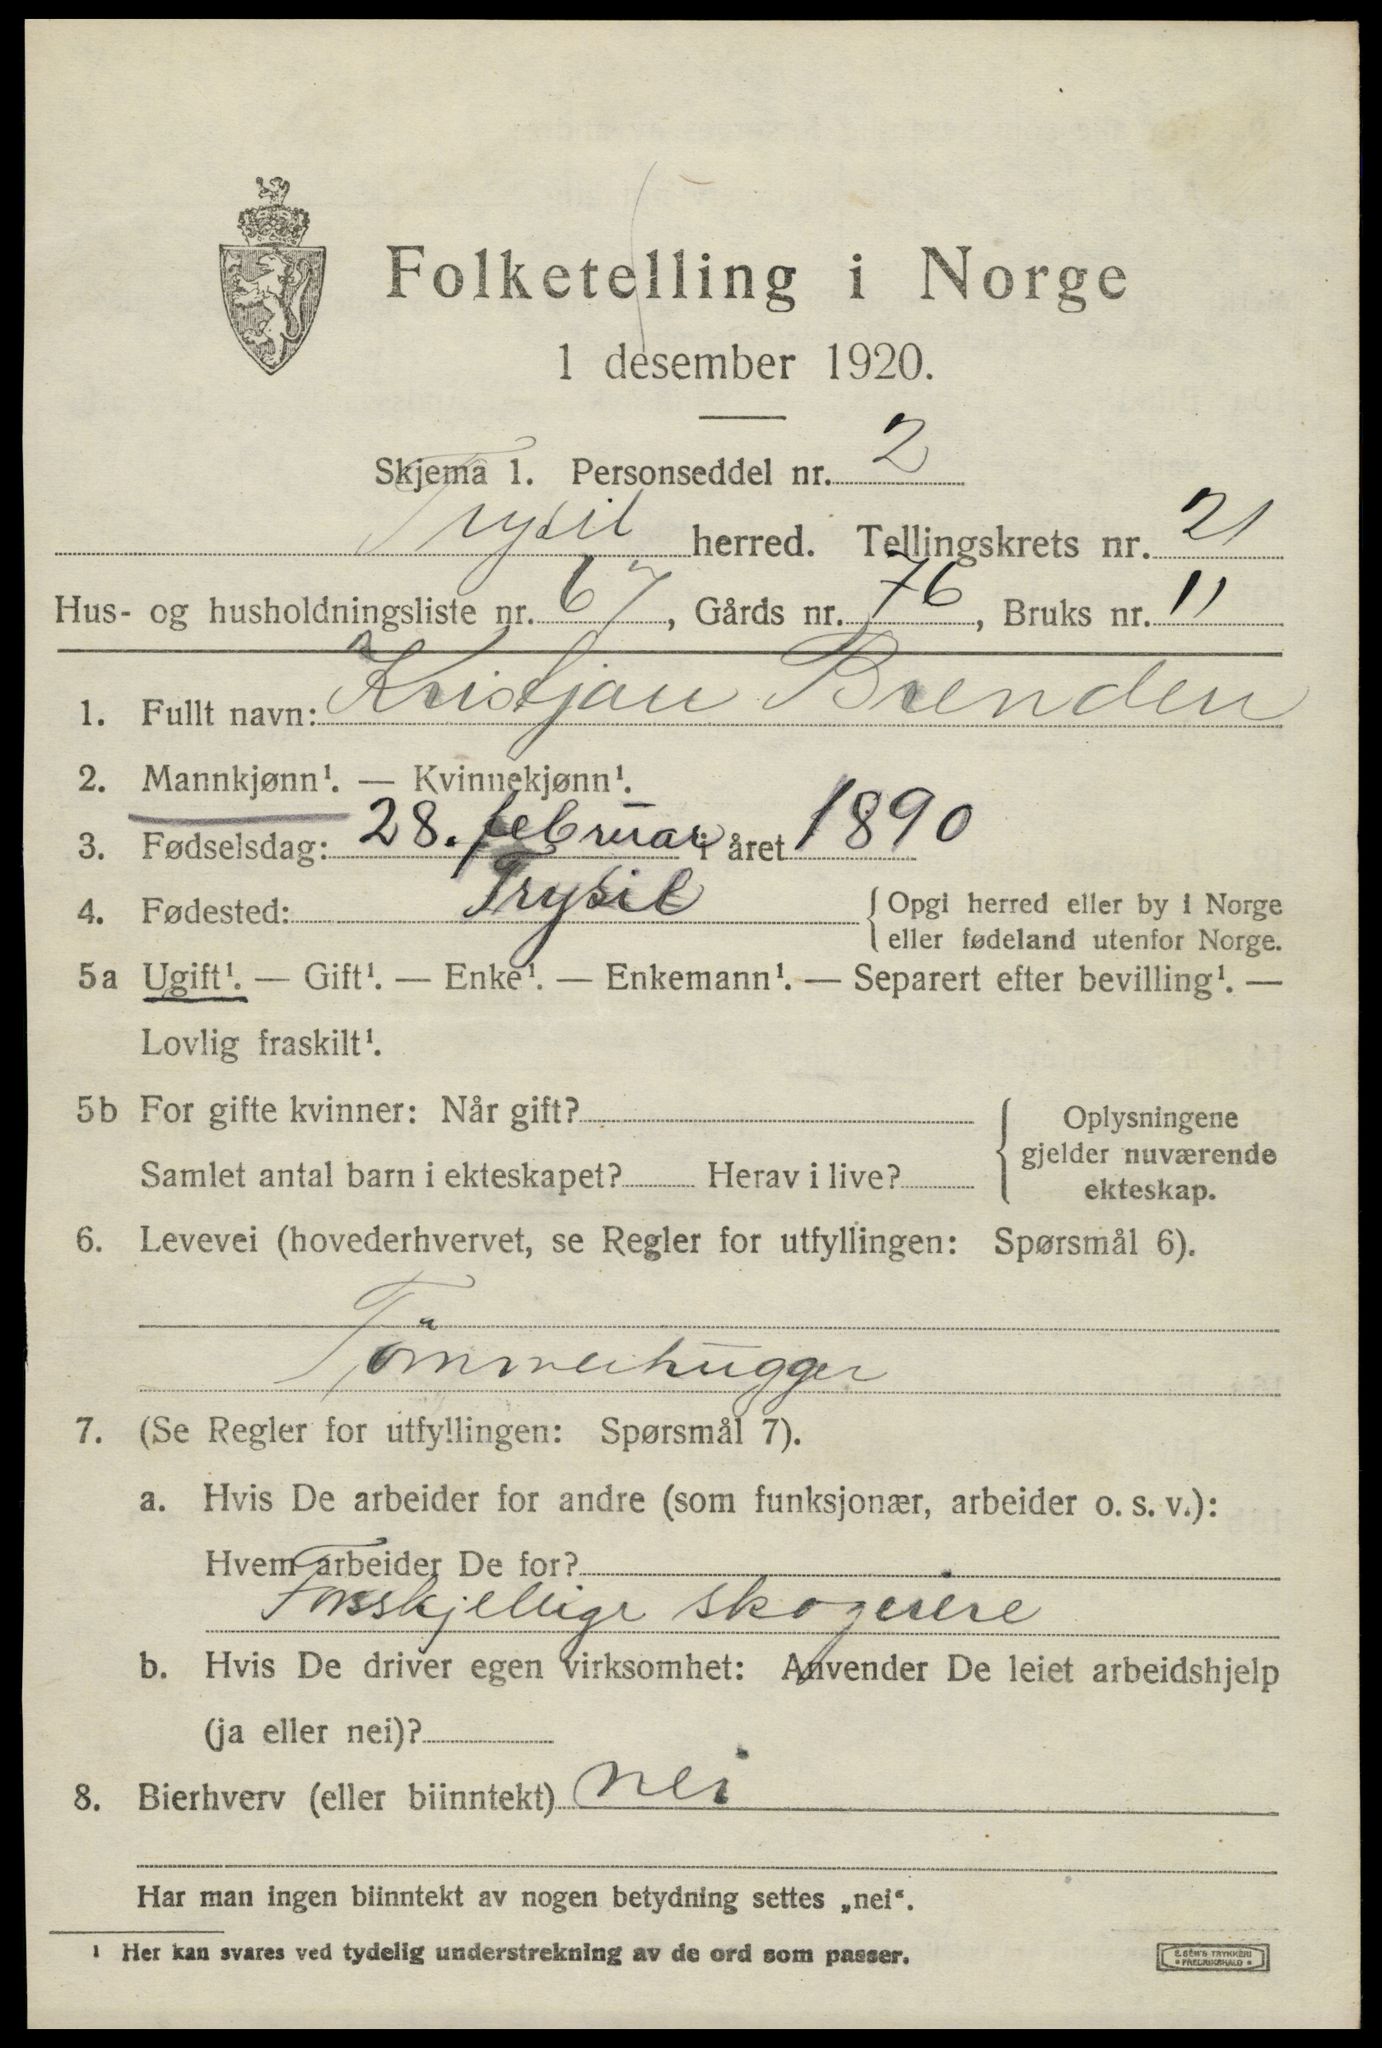 Folketelling i Norge
1 desember 1920.
Skjema 1. Personseddel nr. 2
Trysil herred. Tellingskrets nr. 21
Hus- og husholdningsliste nr. 67, Gårds nr. 76, Bruks nr. 11
1. Fullt navn: Kristjan Brenden
2. Mannkjønn¹. — Kvinnekjønn¹.
3. Fødselsdag: 28. februar i året 1890
4. Fødested: Trysil { Opgi herred eller by i Norge
eller fødeland utenfor Norge.
5a Ugift¹. — Gift¹. — Enke¹. — Enkemann¹. — Separert efter bevilling¹. —
Lovlig fraskilt¹.
5b For gifte kvinner: Når gift? { Oplysningene
gjelder nuværende
Samlet antal barn i ekteskapet? Herav i live?
ekteskap.
6. Levevei (hovederhvervet, se Regler for utfyllingen: Spørsmål 6).
Tömmerhugger
7. (Se Regler for utfyllingen: Spørsmål 7).
a. Hvis De arbeider for andre (som funksjonær, arbeider o. s. v.):
Hvem arbeider De for?
Forskjellige skogeiere
b. Hvis De driver egen virksomhet: Anvender De leiet arbeidshjelp
(ja eller nei)?
8. Bierhverv (eller biinntekt) nei
Har man ingen biinntekt av nogen betydning settes „nei“.
¹ Her kan svares ved tydelig understrekning av de ord som passer.
E. SEM'S TRYKKERI
* FREDRIKSHALD *